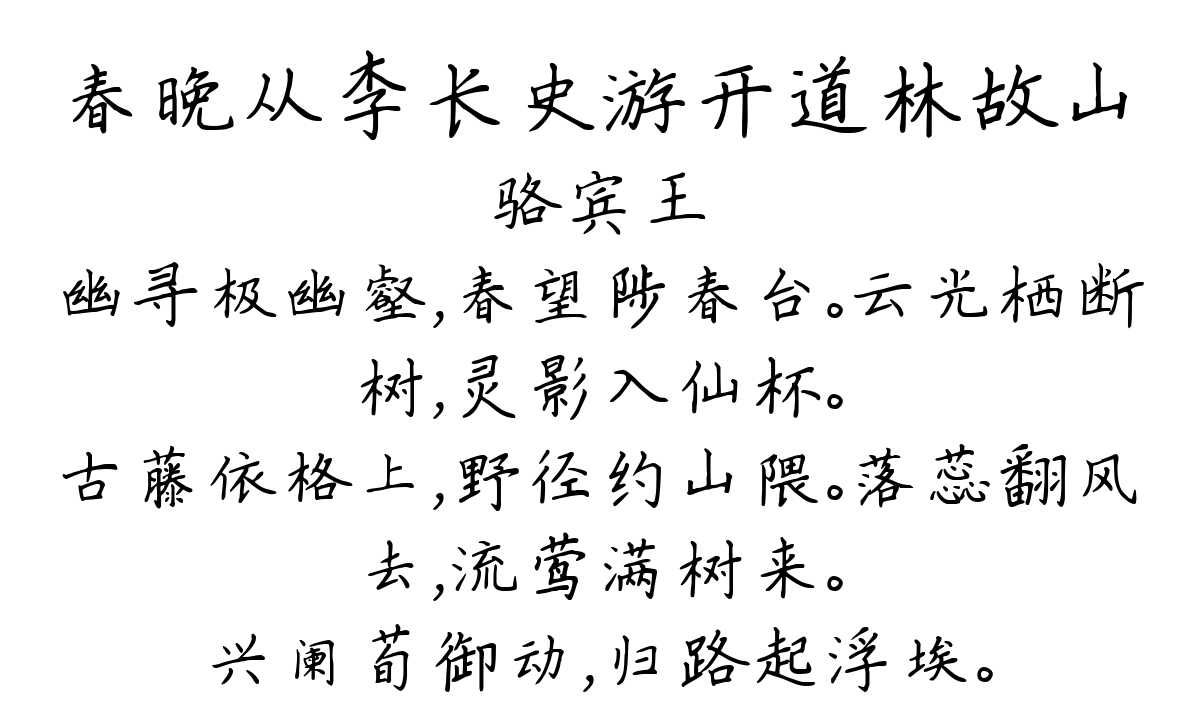 春晚从李长史游开道林故山
骆宾王
幽寻极幽壑,春望陟春台。云光栖断
树,灵影入仙杯。
古藤依格上,野径约山隈。落蕊翻风
去,流莺满树来。
兴阑荀御动,归路起浮埃。